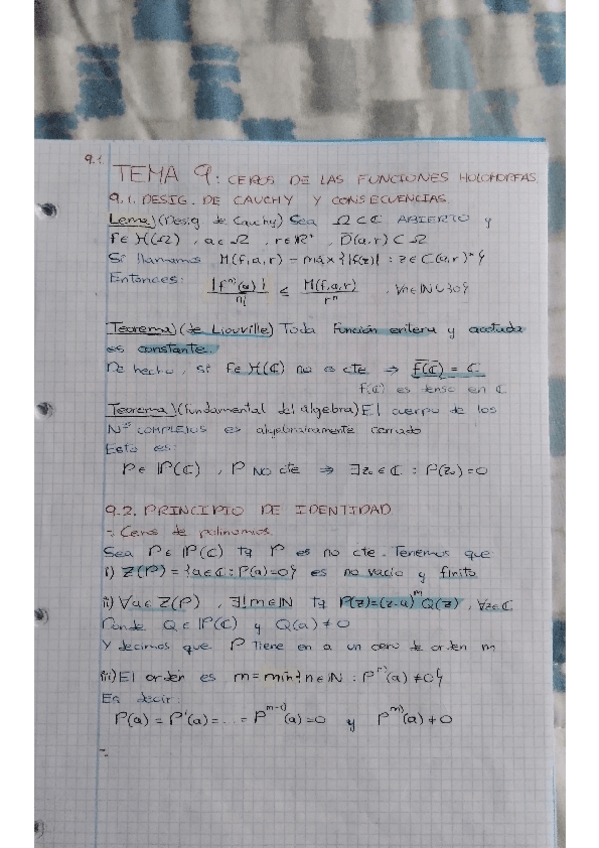 9.1
TEMA 9: CEROS DE LAS FUNCIONES HOLOMORFAS
9.1. DESIG. DE CAUCHY Y CONSECUENCIAS.
Lema)(Desig de Cauchy) Sea Ω⊂ℂ ABIERTO y
f∈H(Ω), a∈Ω, r∈ℝ⁺, D̄(a,r)⊂Ω
Si llamamos M(f,a,r) = máx{|f(z)| : z∈C(a,r)*}
Entonces: |f^{n)}(a)|/n! ≤ M(f,a,r)/r^n, ∀n∈ℕ∪{0}
Teorema)(de Liouville) Toda función entera y acotada
es constante.
De hecho, si f∈H(ℂ) no es cte ⇒ \overline{f(ℂ)} = ℂ
f(ℂ) es denso en ℂ
Teorema)(fundamental del álgebra) El cuerpo de los
Nºs COMPLEJOS es algebraicamente cerrado
Esto es:
P∈ℙ(ℂ), P NO cte ⇒ ∃z₀∈ℂ : P(z₀)=0
9.2. PRINCIPIO DE IDENTIDAD
- Ceros de polinomios
Sea P∈ℙ(ℂ) tq P es no cte. Tenemos que
i) Z(P)={a∈ℂ:P(a)=0} es no vacío y finito
ii) ∀a∈Z(P), ∃!m∈ℕ tq P(z)=(z-a)^m Q(z), ∀z∈ℂ
Donde Q∈ℙ(ℂ) y Q(a)≠0
Y decimos que P tiene en a un cero de orden m
iii) El orden es m=mín{n∈ℕ : P^{n)}(a)≠0}
Es decir:
P(a)=P'(a)=...=P^{m-1)}(a)=0 y P^{m)}(a)≠0